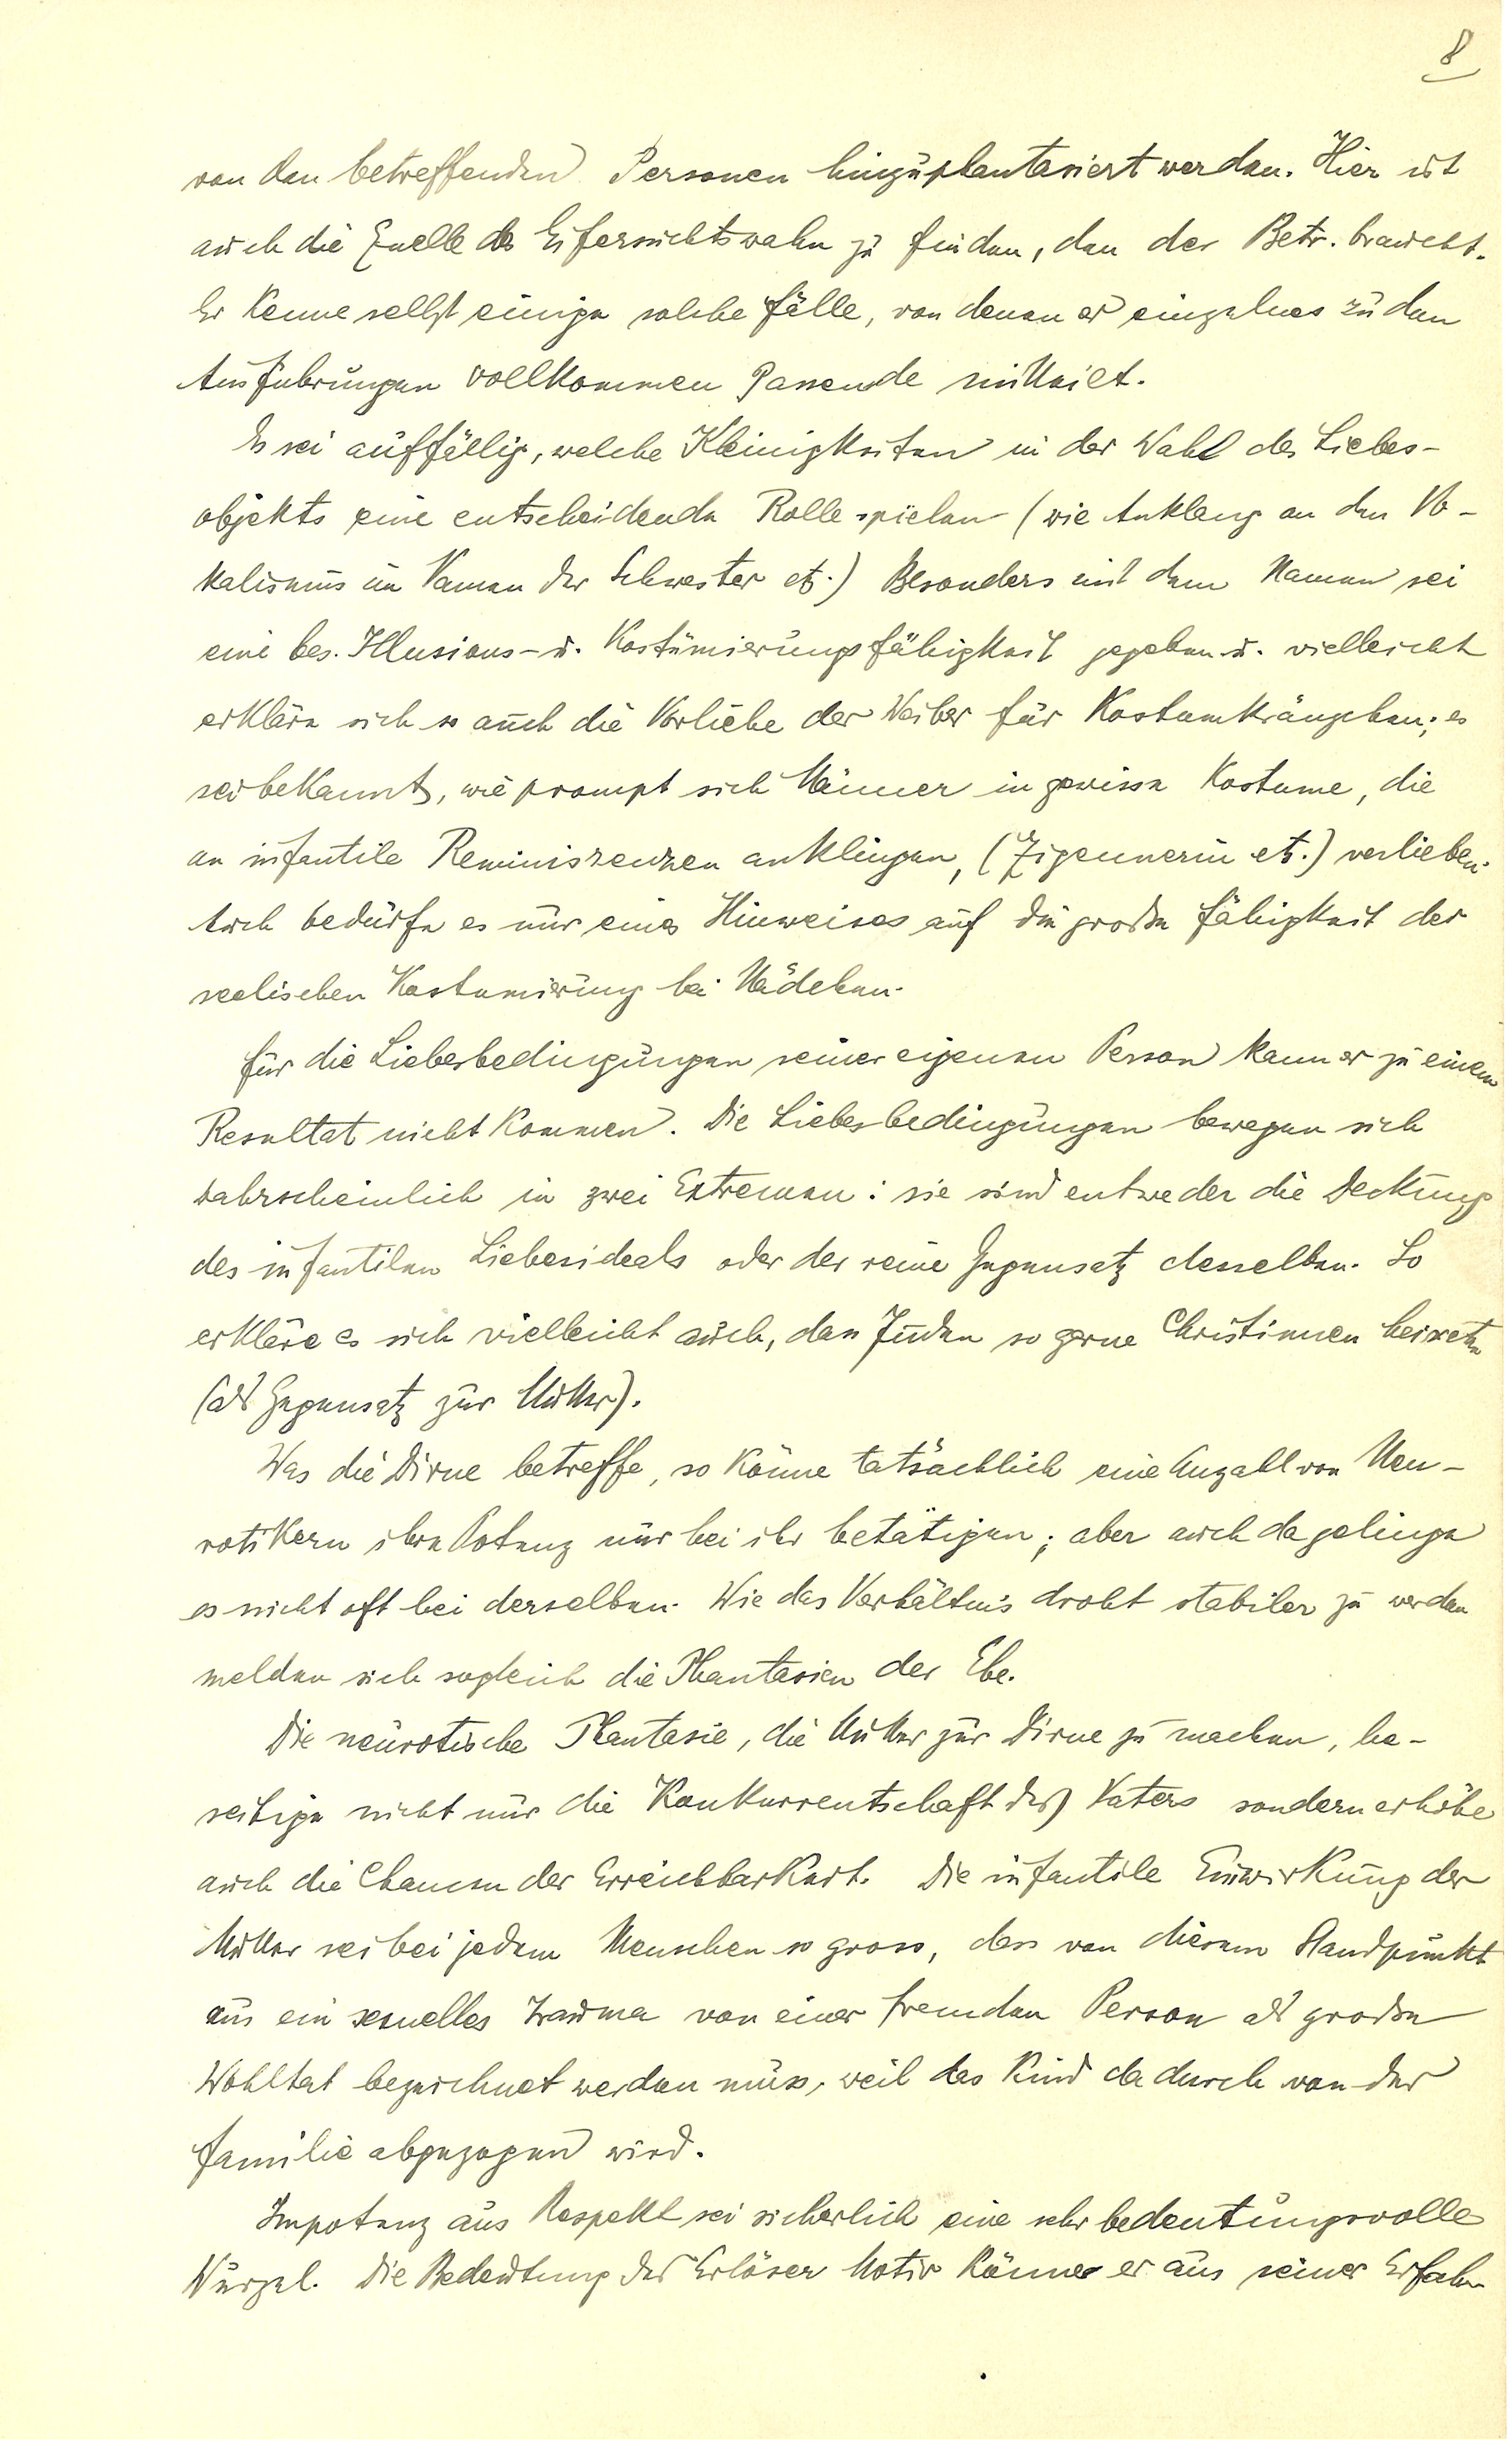 8
von den betreffenden Personen hinzuphantasiert werden. Hier ist
auch die Quelle des Eifersuchtswahn zu finden, den der Betr. braucht.
Er kenne selbst einige solche Fälle, von denen er einzelnes zu den
Ausführungen vollkommen Passende mitteilt.
Es sei auffällig, welche Kleinigkeiten in der Wahl des Liebes-
objekts eine entscheidende Rolle spielen (wie Anklang an den Vo-
kalismus im Namen der Schwester etz.) Besonders mit dem Namen sei
eine bes. Illusions- u. Kostümierungsfähigkeit gegeben u. vielleicht
erkläre sich so auch die Vorliebe der Weiber für Kostumkränzchen; es
sei bekannt, wie prompt sich Männer in gewisse Kostume, die
an infantile Reminiszenzen anklingen, (Zigeunerin etz.) verlieben.
Auch bedürfe es nur eines Hinweises auf die große Fähigkeit der
seelischen Kostumierung bei Mädchen.
Für die Liebesbedingungen seiner eigenen Person kann er zu einem
Resultat nicht kommen. Die Liebesbedingungen bewegen sich
wahrscheinlich in zwei Extremen: sie sind entweder die Deckung
des infantilen Liebesideals oder der reine Gegensatz desselben. So
erkläre es sich vielleicht auch, dass Juden so gerne Christinnen heiraten
(als Gegensatz zur Mutter).
Was die Dirne betreffe, so könne tatsächlich eine Anzahl von Neu-
rotikern ihre Potenz nur bei ihr betätigen; aber auch da gelinge
es nicht oft bei derselben. Wie das Verhältnis droht stabiler zu werden
melden sich sogleich die Phantasien der Ehe.
Die neurotische Phantasie, die Mutter zur Dirne zu machen, be-
seitige nicht nur die Konkurrentschaft des Vaters sondern erhöhe
auch die Chancen der Erreichbarkeit. Die infantile Einwirkung der
Mutter sei bei jedem Menschen so gross, dass von diesem Standpunkt
aus ein sexuelles Trauma von einer fremden Person als große
Wohltat bezeichnet werden muss, weil das Kind dadurch von der
Familie abgezogen wird.
Impotenz aus Respekt sei sicherlich eine sehr bedeutungsvolle
Wurzel. Die Bedeutung des Erlöser Motiv könne er aus seiner Erfah